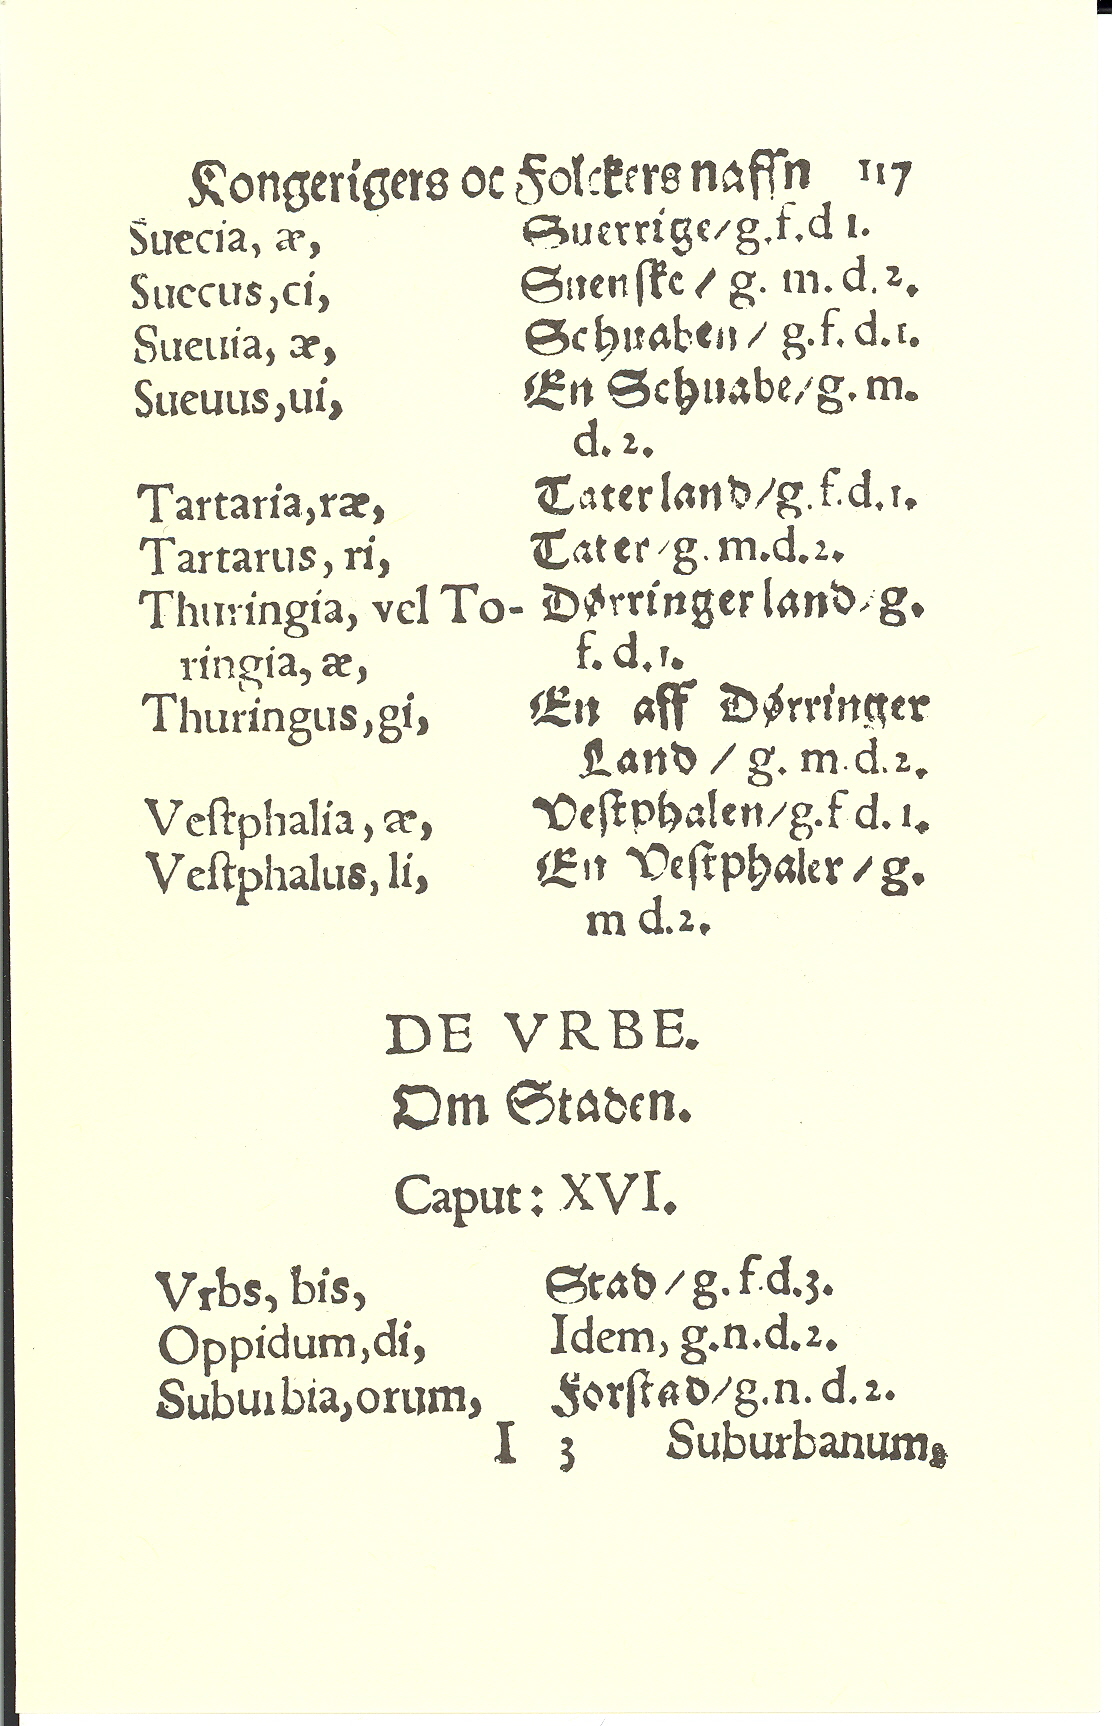 Kongerigers oc Folckers naffn 117
Suecia, æ, Suerrige/g.f.d 1.
Suecus,ci, Suenſke / g. m. d. 2.
Sueuia, æ, Schuaben / g.f. d.1.
Sueuus,ui, En Schuabe/g. m.
d. 2.
Tartaria,ræ, Taterland/g.f.d.1.
Tartarus, ri, Tater/g. m.d.2.
Thuringia, vel To- Dørringerland/g.
ringia, æ, f. d.1.
Thuringus,gi, En aff Dørringer
Land / g. m.d.2.
Veſtphalia, æ, Veſtphalen/g.f d. 1.
Veſtphalus, li, En Veſtphaler / g.
m d.2.
DE VRBE.
Om Staden.
Caput: XVI.
Vrbs, bis, Stad / g. f.d.3.
Oppidum,di, Idem, g.n.d.2.
Suburbia,orum, Forſtad/g.n. d.2.
I 3 Suburbanum,